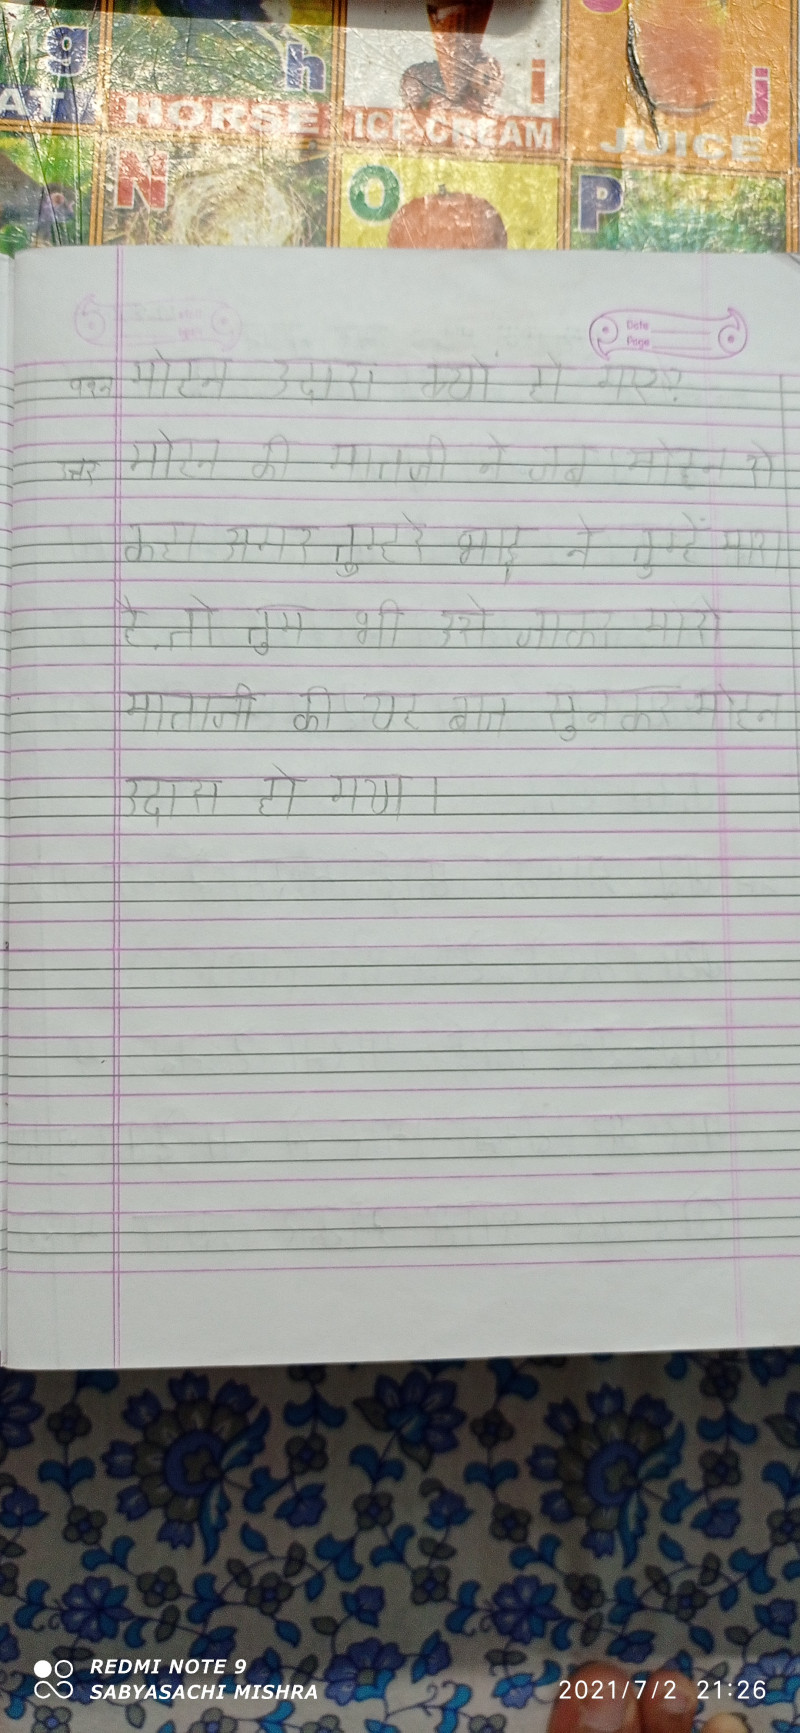 g
h
i
j
AT
HORSE
ICE CREAM
JUICE
N
O
P
Date
Page
प्रश्न मोहन उदास क्यों हो गए?
उत्तर मोहन की माताजी ने जब मोहन से
कहा अगर तुम्हरे भाई ने तुम्हें मारा
है तो तुम भी उसे जाकर मारो
माताजी की यह बात सुनकर मोहन
उदास हो गया।
REDMI NOTE 9
SABYASACHI MISHRA
2021/7/2 21:26